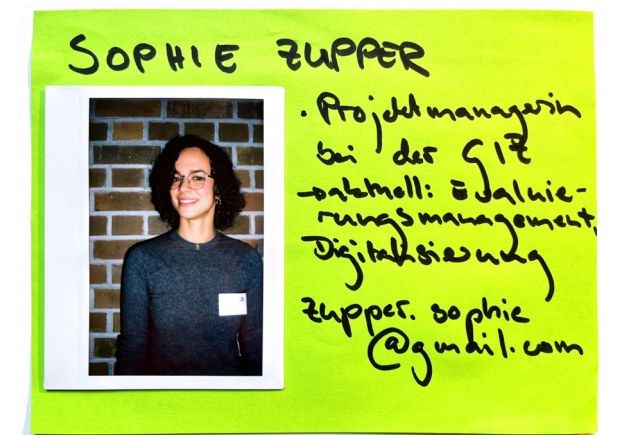 SOPHIE ZUPPER
• Projektmanagerin
bei der GIZ
→ aktuell: Evaluie-
rungsmanagement,
Digitalisierung
zupper.sophie
@gmail.com